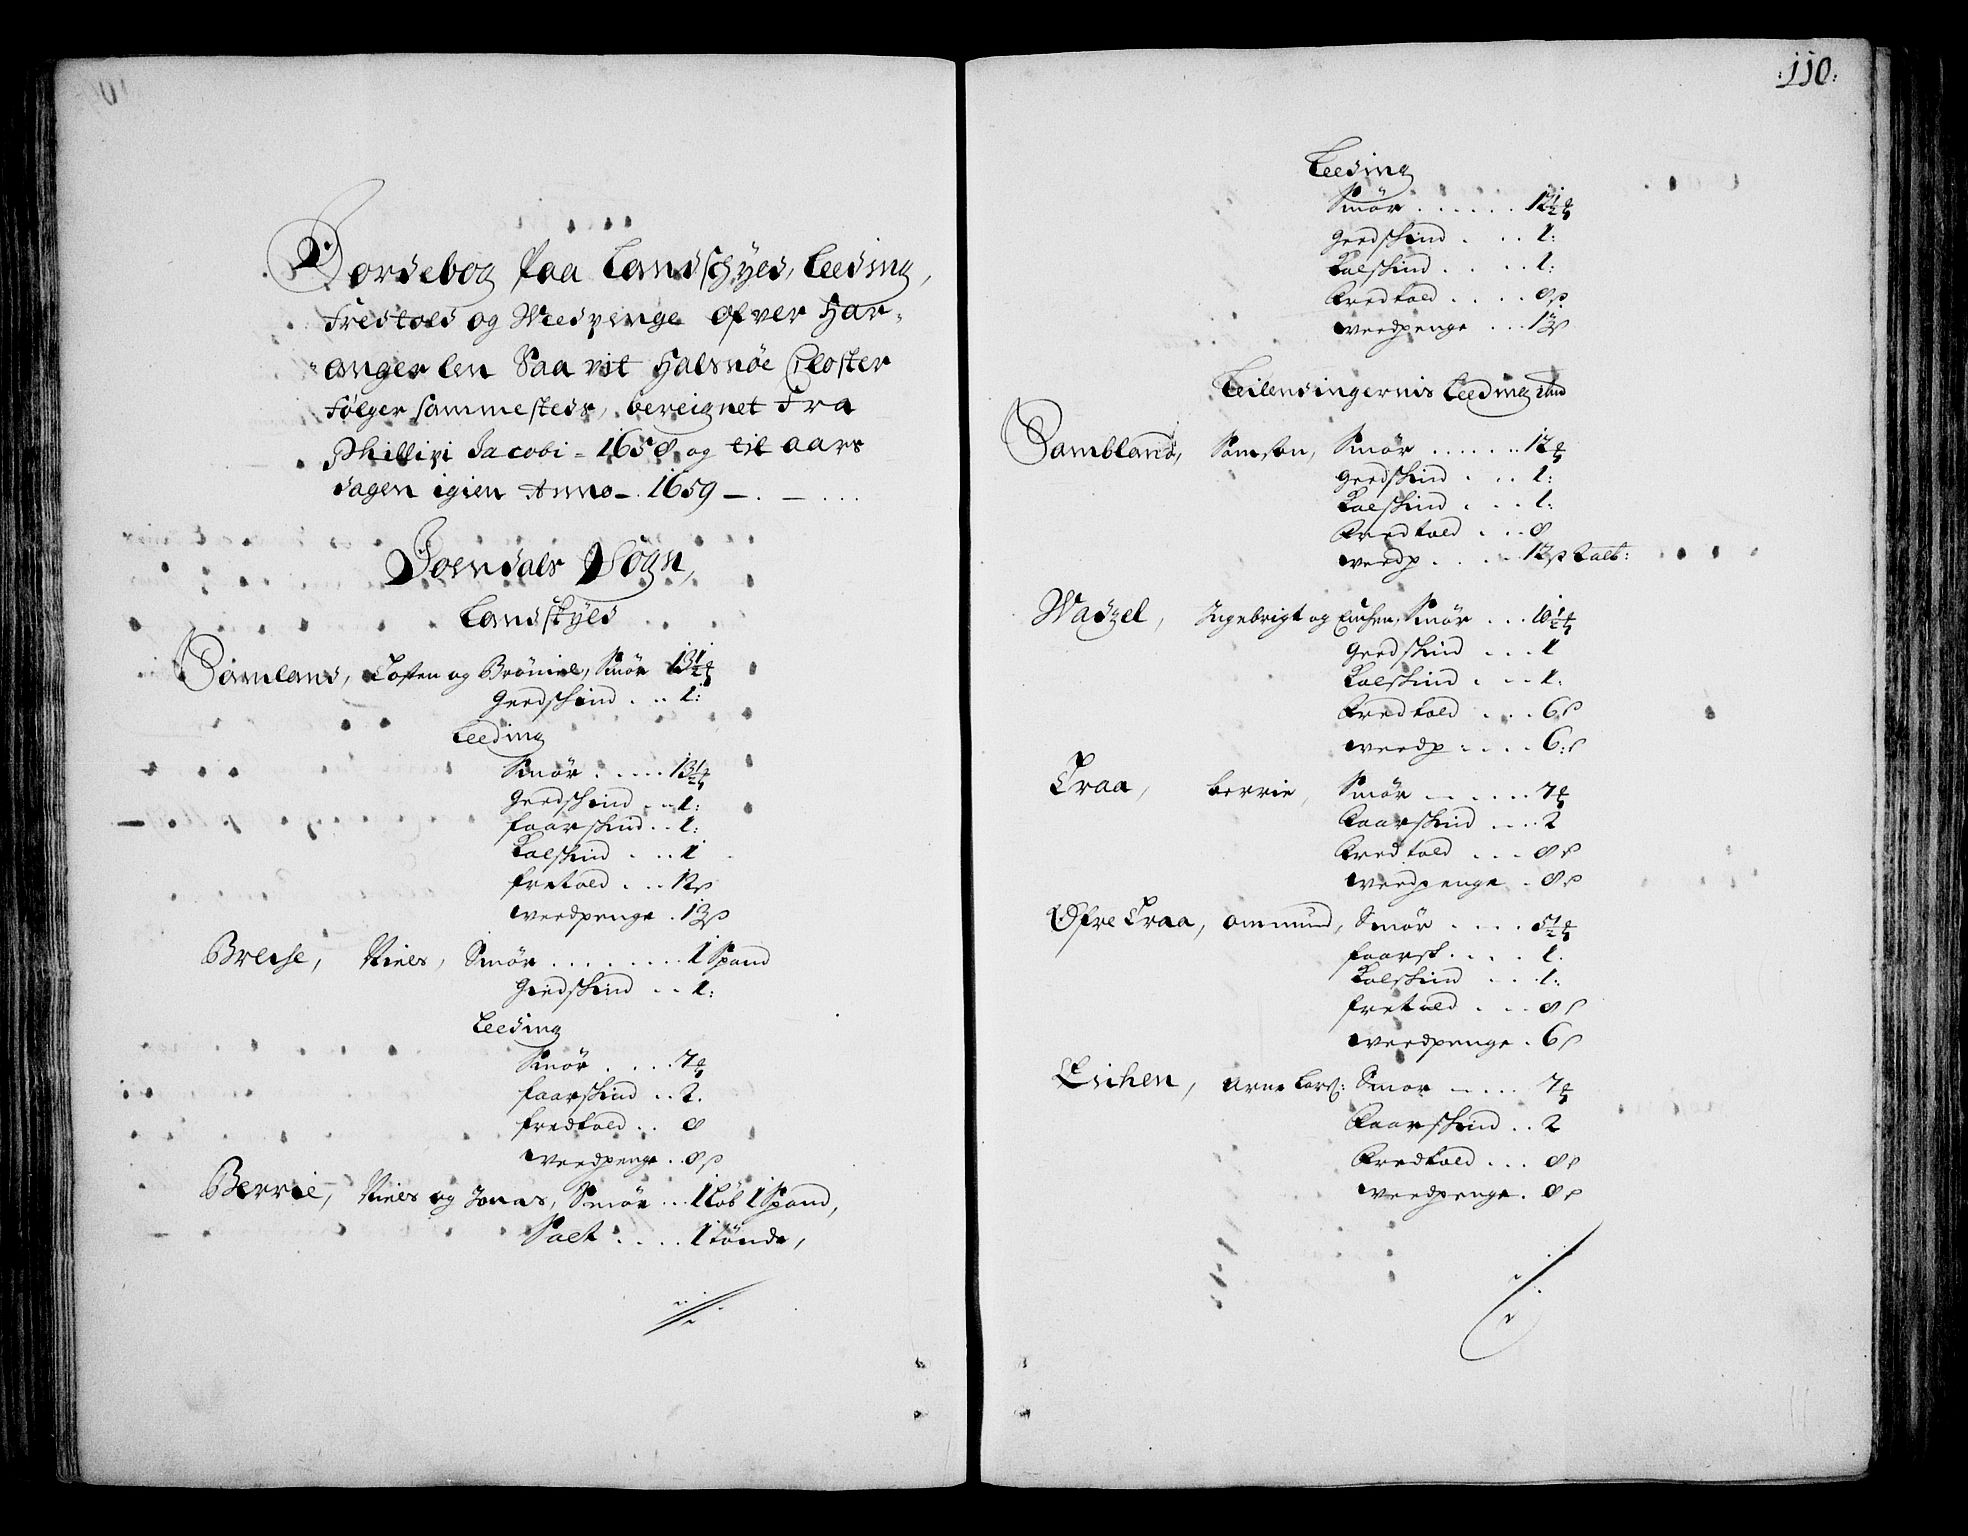 Jordebog paa Landschyed, Leeding,
Fredtold og Weedpenge ofver Har-
anger len Saa vit Halsnøe Closter
følger sammesteds, bereignet Fra
Phillipi Jacobi - 1658 og til aars
dagen igien Anno - 1659 -
Jondals Sogn,
Landskyld
Tosten og Smør 13½
Geedskind . . . 1:
Leeding
Smør . . . . . 13½
Geedskind . . . 1:
faarskind . . 1:
Kalfskind . . . 1
fretold . . . 12 s
weedpenge . 13 s
Breche, Niels, Smør . . . . . . . . 1 Spand
Giedskind . . 1:
Leeding
Smør . . . . 7
faarskind . . 2.
fredtold . . 8
weedpenge . 8 s
Berrie, Niels og Jonas, Smør . . . 1 Løb 1 Spand,
Salt . . . . 1 tønde,
:110:
Leeding
Smør . . . . . . 12½
Geedskind . . . . 1:
Kalskind . . . . . 1:
Fredtold . . . . 8 s
weedpenge . . . 13 s
Leilendingernis Leeding
Sambland, Samson, Smør . . . . . . 12
Geedskind . . . . 1:
Kalskind . . . . 1:
Fredtold . . . 8
weedp . . . . 12 s
Ingebrigt og Smør . . . 10½
Geedskind . . . . 1
Kalskind . . . . 1:
Fredtold . . . 6 s
weedp . . . . . 6: s
Traa, Berrie, Smør . . . . . . 7
Faarskind . . . . 2
Fredtold . . . 8 s
weedpenge . 8 s
Øfre Traa, Ommund, Smør . . . . 5½
faarsk . . . . . 1.
Kalskind . . . 1:
fretold . . . 8 s
weedpenge . 6 s
Eichen, Arne Lars: Smør . . . . 7
Faarskind . . 2
Fredtold . . . 8 s
weedpenge . 8 s